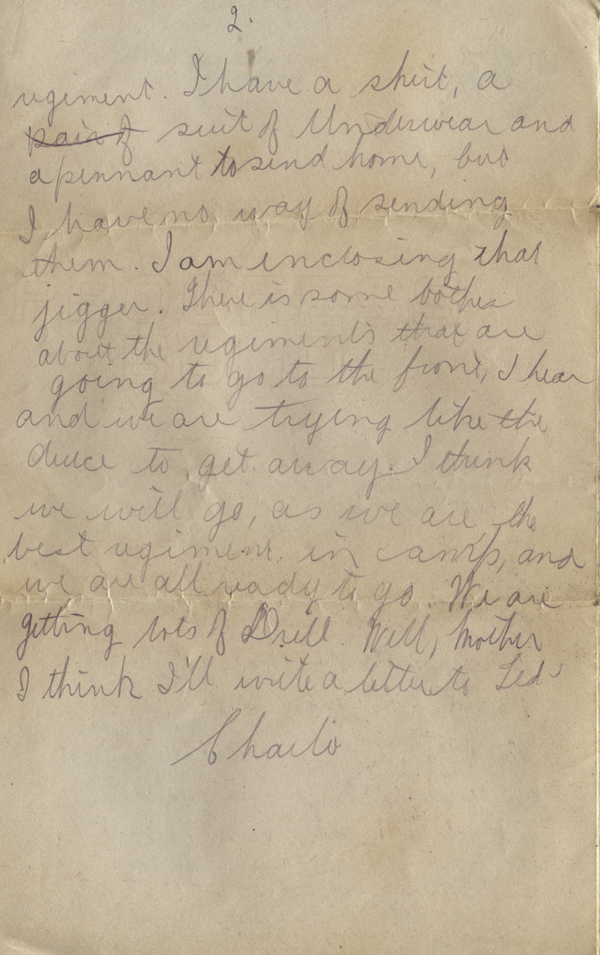 2.
regiment. I have a shirt, a
pair of suit of Underwear and
a pennant to send home, but
I have no way of sending
them. I am inclosing that
jigger. There is some bother
about the regiments that are
going to go to the front, I hear
and we are trying like the
deuce to get away. I think
we will go, as we are the
best regiment in camp, and
we are all ready to go. We are
getting lots of Drill. Well, Mother
I think I'll write a letter to Led
Charlie